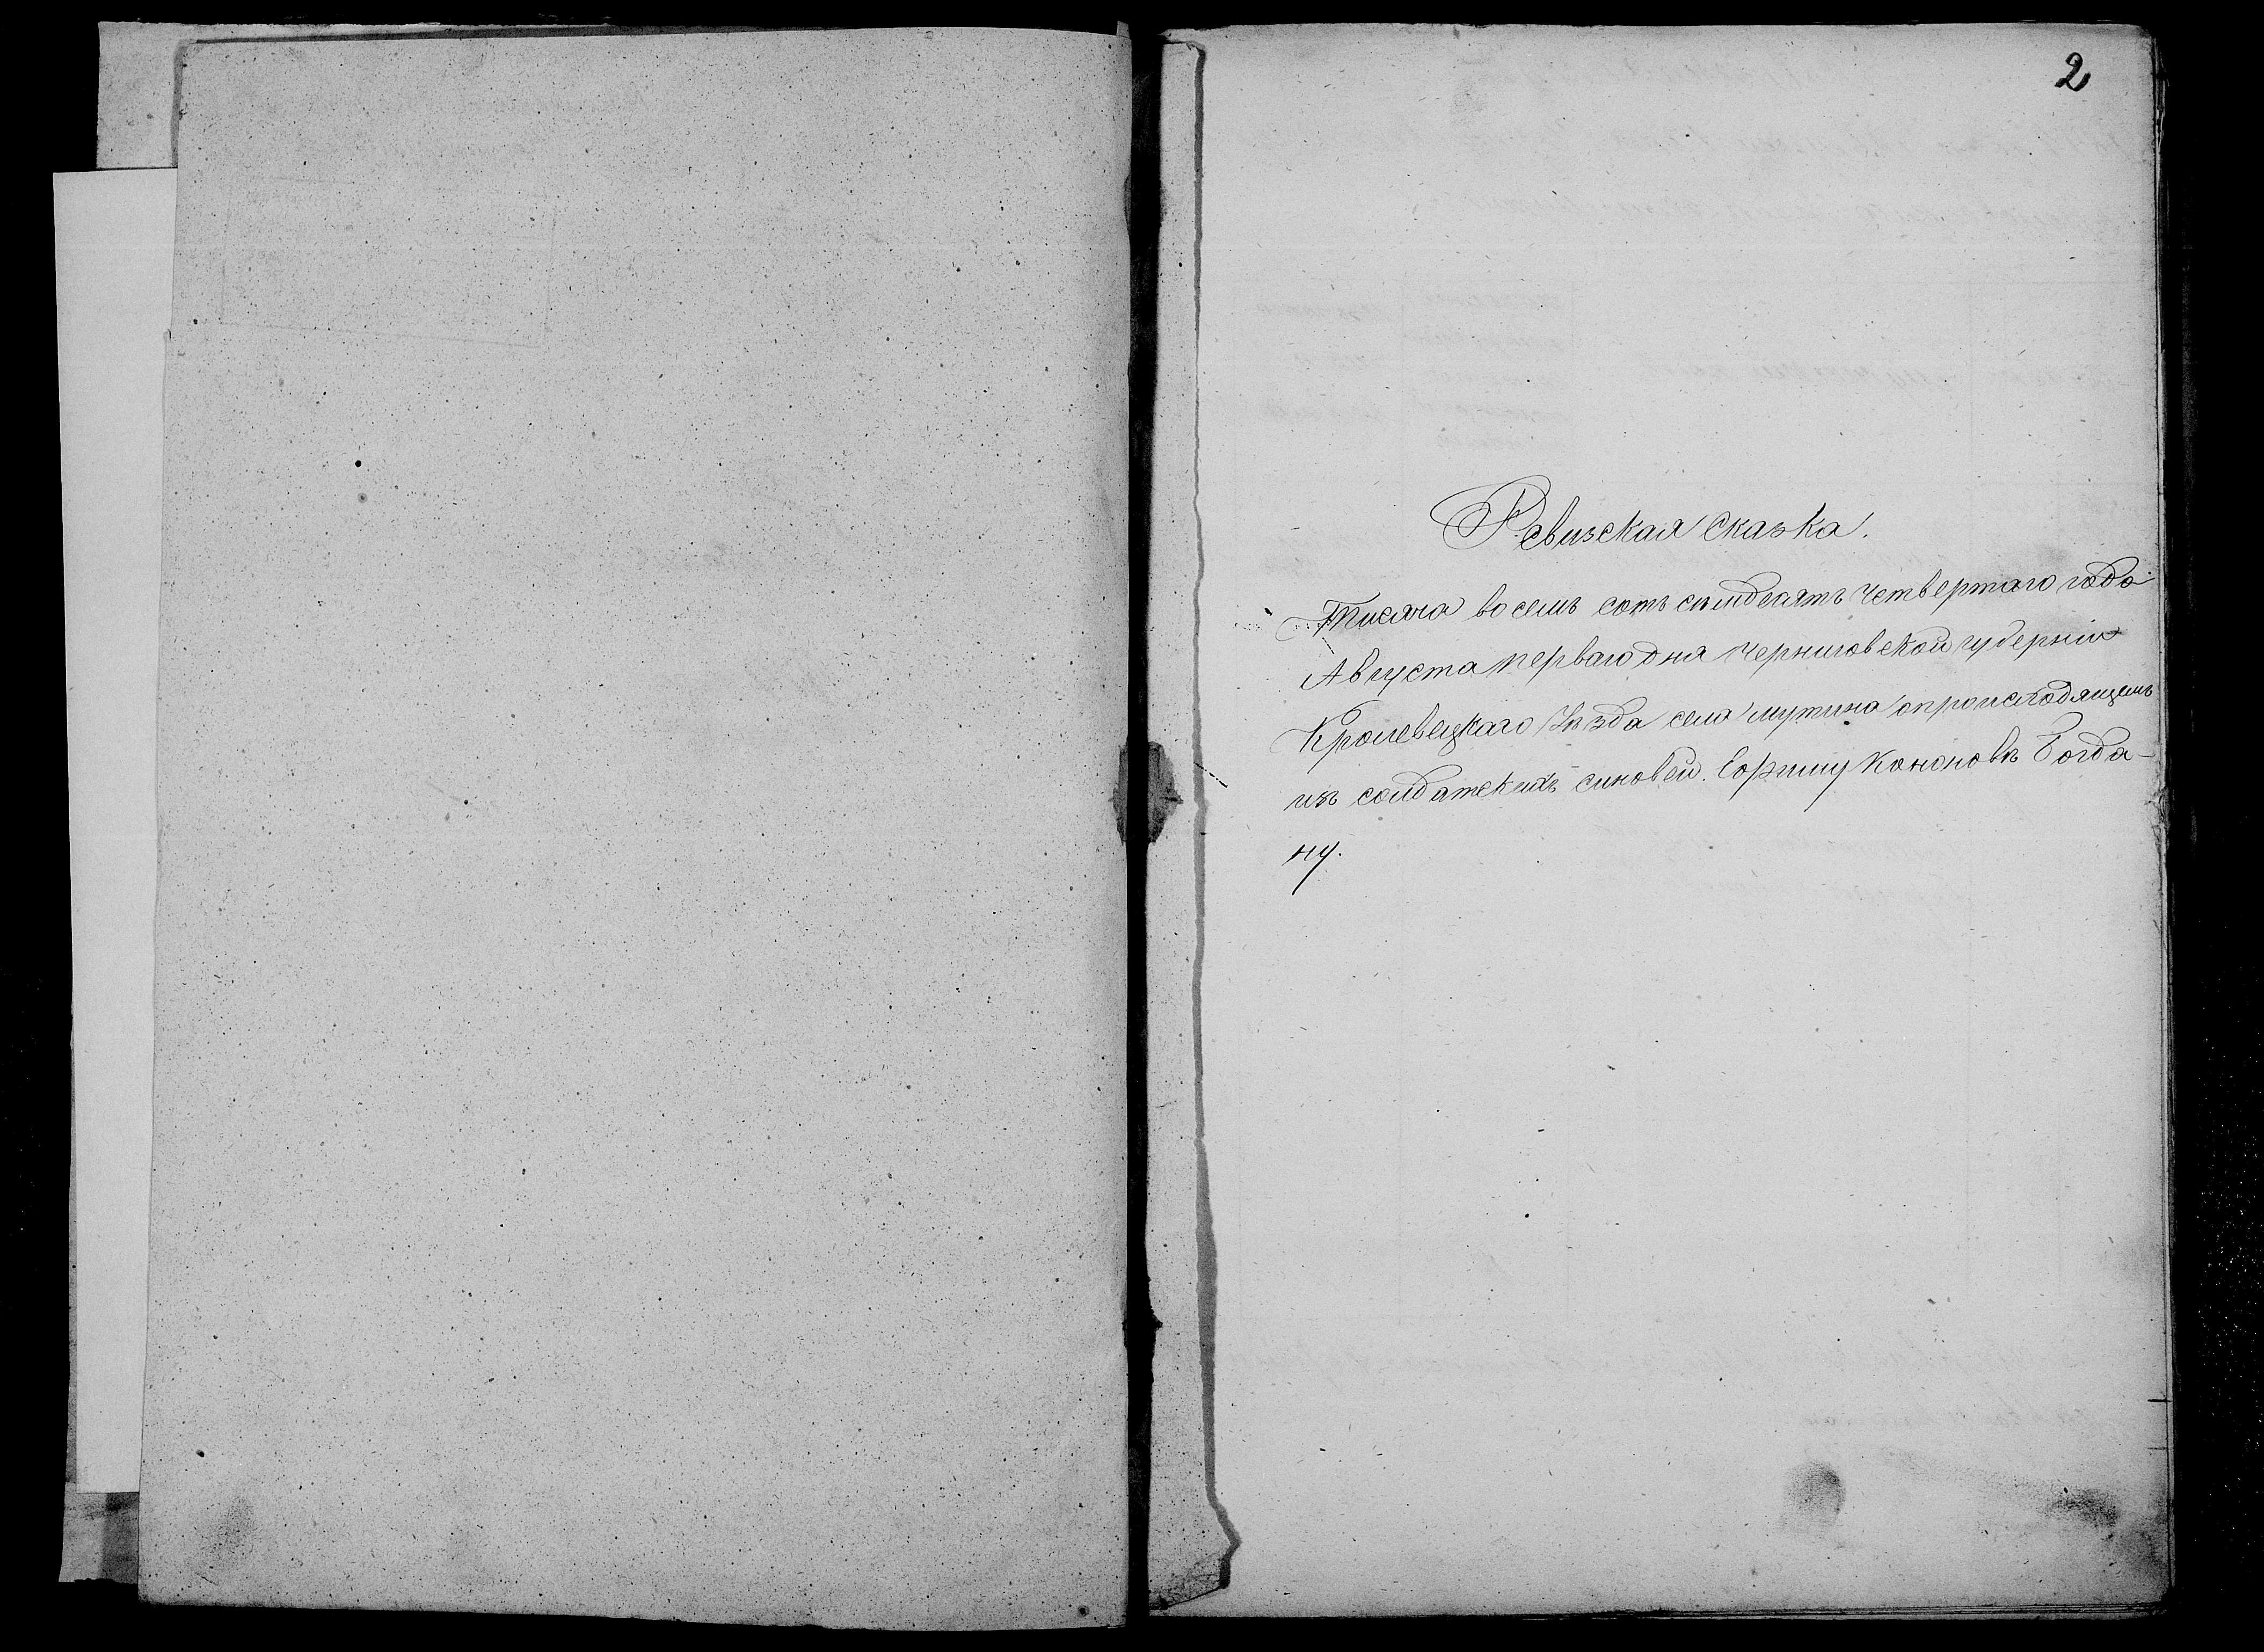 2
Ревизская сказка.
Тисяча восемь сотъ семдесятъ четвертаго года
Августа перваго дня Черниговской губерніи
Кролевецкаго Уѣзда села мутина опроисходящемъ
изъ солдатскихъ синовей. Кононовѣ Богда-
ну.